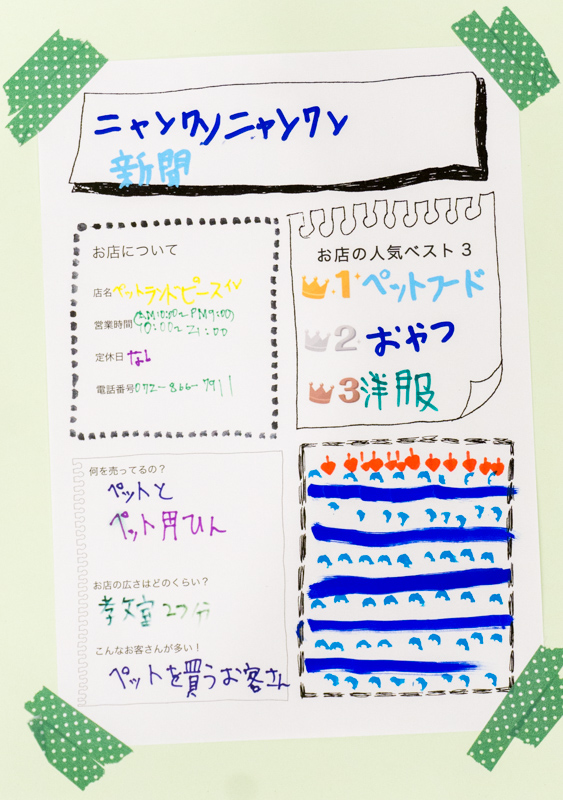 ニャンワンニャンワン
新聞
お店について
店名 ペットランドピース
営業時間 (AM10:00〜PM9:00)
10:00〜21:00
定休日 なし
電話番号 072-866-7911
お店の人気ベスト3
1 ペットフード
2 おやつ
3 洋服
何を売ってるの？
ペットと
ペット用ひん
お店の広さはどのくらい？
室2つ分
こんなお客さんが多い！
ペットを買うお客さん